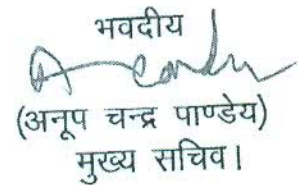 भवदीय
(अनूप चन्द्र पाण्डेय)
मुख्य सचिव।